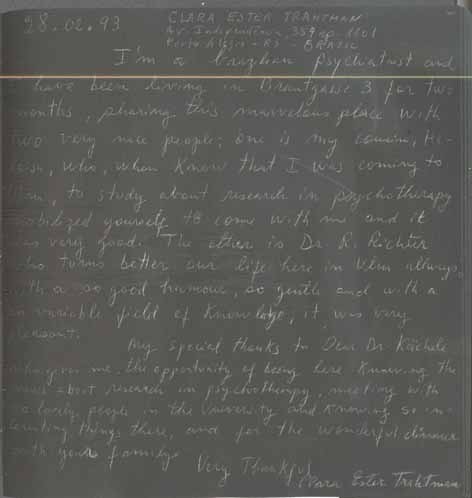 28.02.93 CLARA ESTER TRAHTMAN
Av. Independência, 354 ap. 1101
Porto Alegre - RS - BRASIL
I'm a brazilian psychiatrist and
I have been living in Brautgasse 3 for two
months, sharing this marvelous place with
two very nice people; one is my cousin, He-
loisa, who, when know that I was coming to
Ulm, to study about research in psychotherapy
mobilized yourself to come with me and it
was very good. The other is Dr. R. Richter
who turns better our life here in Ulm allways
with a so good humour, so gentle and with a
so variable field of knowledge; it was very
pleasant.
My special thanks to Dear Dr Kächele
who gives me the opportunity of being here knowing the
news about research in psychotherapy, meeting with
so lovely people in the University and knowing so in-
teresting things there, and for the wonderful dinner
with your family.
Very Thankful,
Clara Ester Trahtman